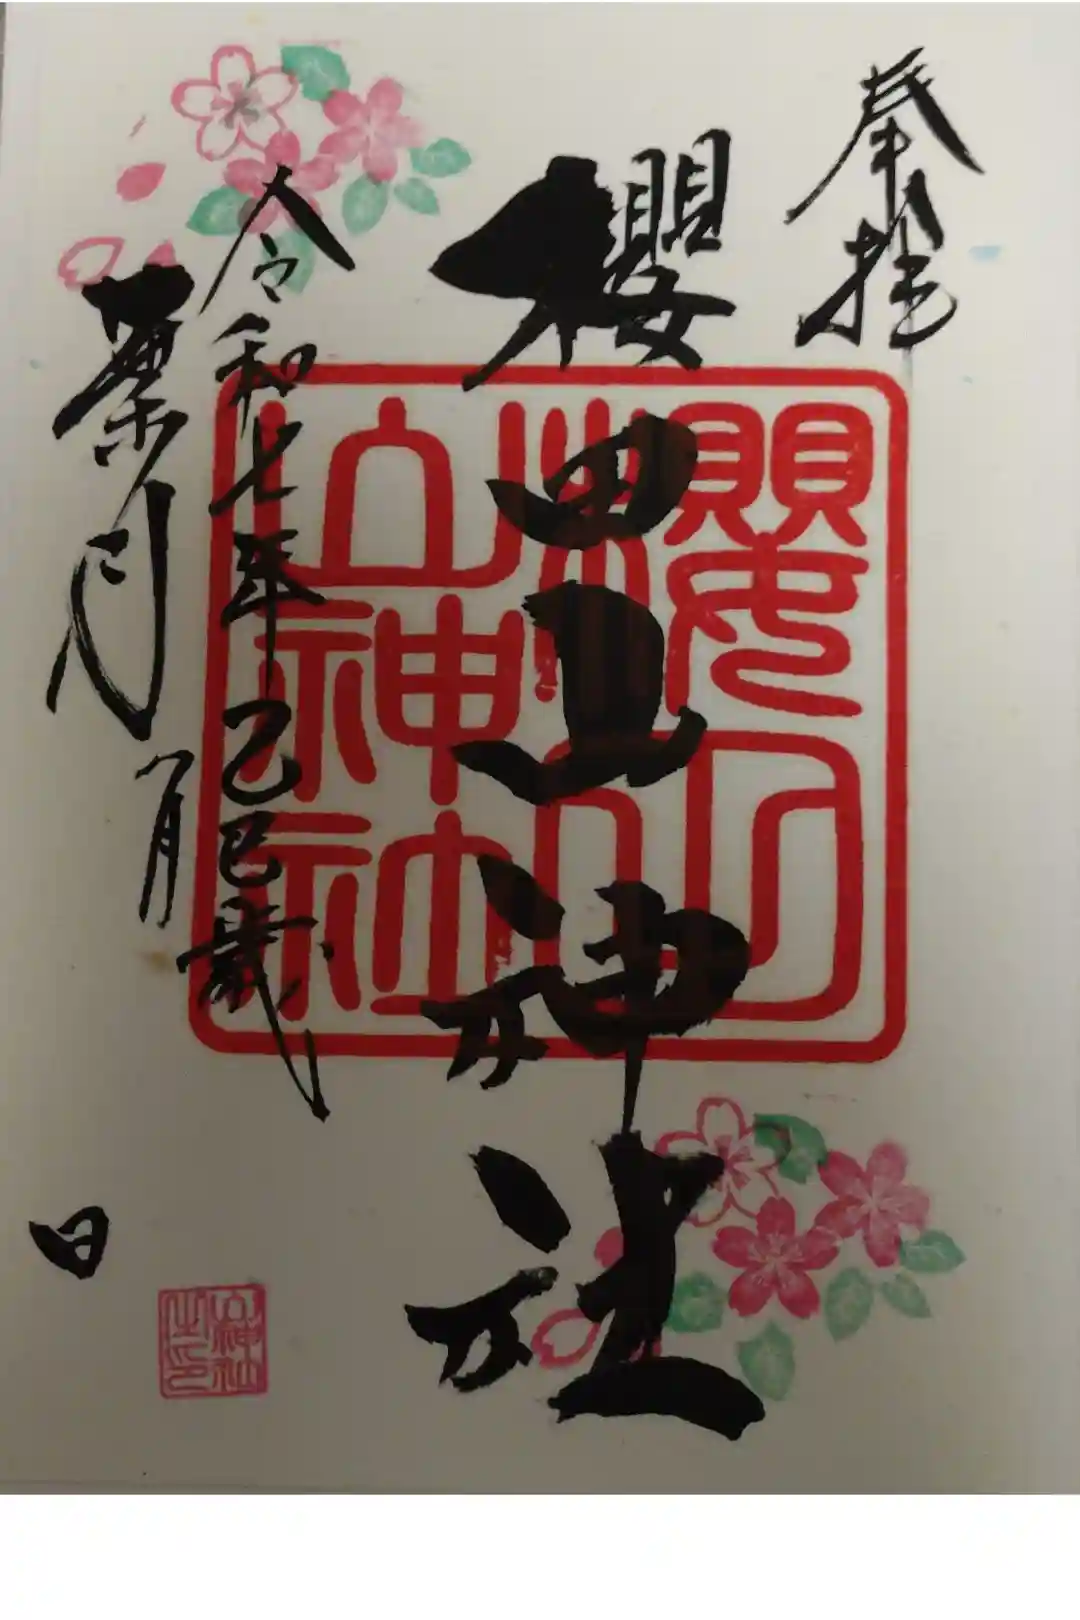 奉拝
櫻田山神社
令和七年乙巳歳
葉月
月
日
山神社之印